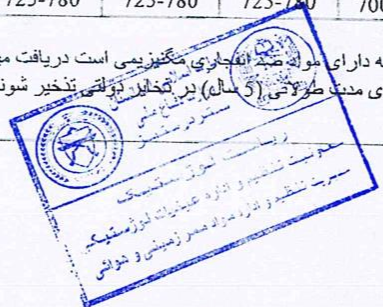 725-780 725-780 725-780 700
ه دارای مواد ضد انفجاری مگنیزیمی است دریافت می
ی مدت طولانی (5 سال) در ذخایر دولتی تذخیر شوند
ریاست لوژستیک
معاونیت تنظیم و اداره عملیات لوژستیکی
مدیریت تنظیم و اداره مواد ممر زمینی و هوائی